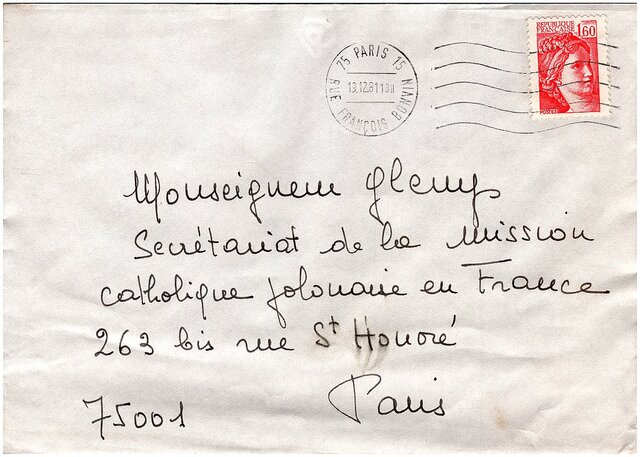 REPUBLIQUE
FRANCAISE 1,60
POSTES
75 PARIS 15
13.12.81 18H
RUE FRANÇOIS BONVIN
Monseigneur Glemp
Secrétariat de la Mission
catholique polonaise en France
263 bis rue St Honoré
75001 Paris